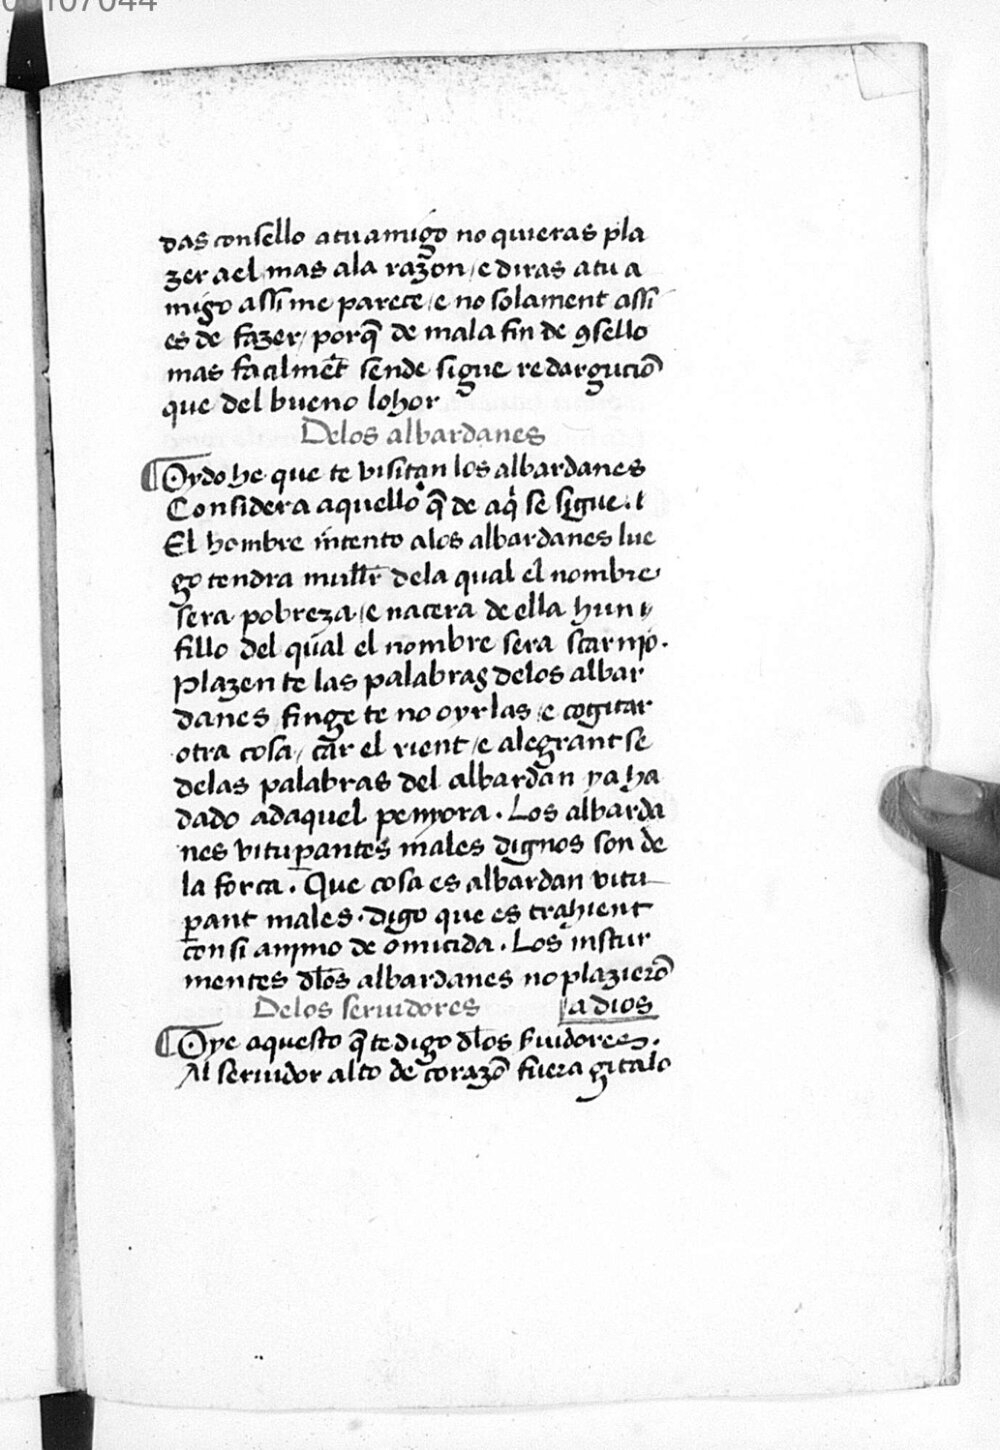 das consello atu amigo no quieras pla
zer a el mas ala razon / e diras atu a
migo assi me parece / e no solament assi
es de fazer / porq̃ de mala fin de ꝯsello
mas facilmẽt sende sigue redarguciõ
que del bueno lohor
Delos albardanes
¶ Oydo he que te visitan los albardanes
Considera aquello q̃ de aq̄ se sigue. t
El hombre intento alos albardanes lue
go tendra mull'r dela qual el nombre
sera pobreza / e nacera de ella hun
fillo del qual el nombre sera scarnio.
Plazen te las palabras delos albar
danes finge te no oyrlas / e cogitar
otra cosa / car el rient / e alegrant se
delas palabras del albardan ya ha
dado adaquel penyora. Los albarda
nes vitup̱antes males dignos son de
la forca. Que cosa es albardan vitu
p̱ant males. digo que es trahient
con si animo de omicida. Los instur
mentes dl̃os albardanes no plazierõ
a dios
Delos seruidores
¶ Oye aquesto q̃ te digo dl̃os s̃uidores.
Al seruidor alto de corazõ fuera gitalo